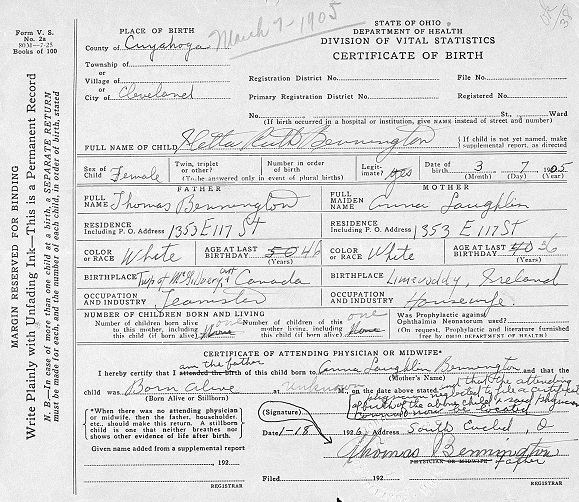 Form V. S.
No. 2a
80M—7-25
Books of 100
PLACE OF BIRTH
March 7-1905
STATE OF OHIO
DEPARTMENT OF HEALTH
DIVISION OF VITAL STATISTICS
CERTIFICATE OF BIRTH
County of Cuyahoga
Township of
or
Village of
or
City of Cleveland
Registration District No. File No.
Primary Registration District No. Registered No.
No. St., Ward
(If birth occurred in a hospital or institution, give NAME instead of street and number)
FULL NAME OF CHILD Ruth Bennington
{If child is not yet named, make supplemental report, as directed
Sex of Child Female
Twin, triplet or other?
Number in order of birth
(To be answered only in event of plural births)
Legitimate? yes
Date of birth 3 7 1905
(Month) (Day) (Year)
FATHER
MOTHER
FULL NAME Thomas Bennington
FULL MAIDEN NAME Anna Laughlin
RESIDENCE Including P. O. Address 1353 E 117 St
RESIDENCE Including P. O. Address 1353 E 117 St
COLOR OR RACE White AGE AT LAST BIRTHDAY 50 46 (Years)
COLOR OR RACE White AGE AT LAST BIRTHDAY 40 36 (Years)
BIRTHPLACE Twp of Ont Canada
BIRTHPLACE Ireland
OCCUPATION AND INDUSTRY Teamster
OCCUPATION AND INDUSTRY Housewife
NUMBER OF CHILDREN BORN AND LIVING
Number of children born alive to this mother, including this child (if born alive) one None
Number of children of this mother living, including this child (if born alive) one None
Was Prophylactic against Ophthalmia Neonatorum used?
(On request, Prophylactic and literature furnished free by OHIO DEPARTMENT OF HEALTH)
CERTIFICATE OF ATTENDING PHYSICIAN OR MIDWIFE*
am the father
I hereby certify that I attended the birth of this child born to Anna Laughlin Bennington and that the
(Mother's Name)
child was Born Alive at Unknown M., on the date above stated, and that the attending
(Born Alive or Stillborn)
physician neglected to file a certificate
of birth of the above child & said physician
cannot now be located
*When there was no attending physician
or midwife, then the father, householder,
etc. should make this return. A stillborn
child is one that neither breathes nor
shows other evidence of life after birth.
(Signature)
Date 1-18 1926 Address South Euclid, O
Thomas Bennington
PHYSICIAN OR MIDWIFE Father
Given name added from a supplemental report
, 192
REGISTRAR
Filed , 192
REGISTRAR
MARGIN RESERVED FOR BINDING
Write Plainly with Unfading Ink—This is a Permanent Record
N. B—In case of more than one child at a birth, a SEPARATE RETURN
must be made for each, and the number of each child, in order of birth, stated